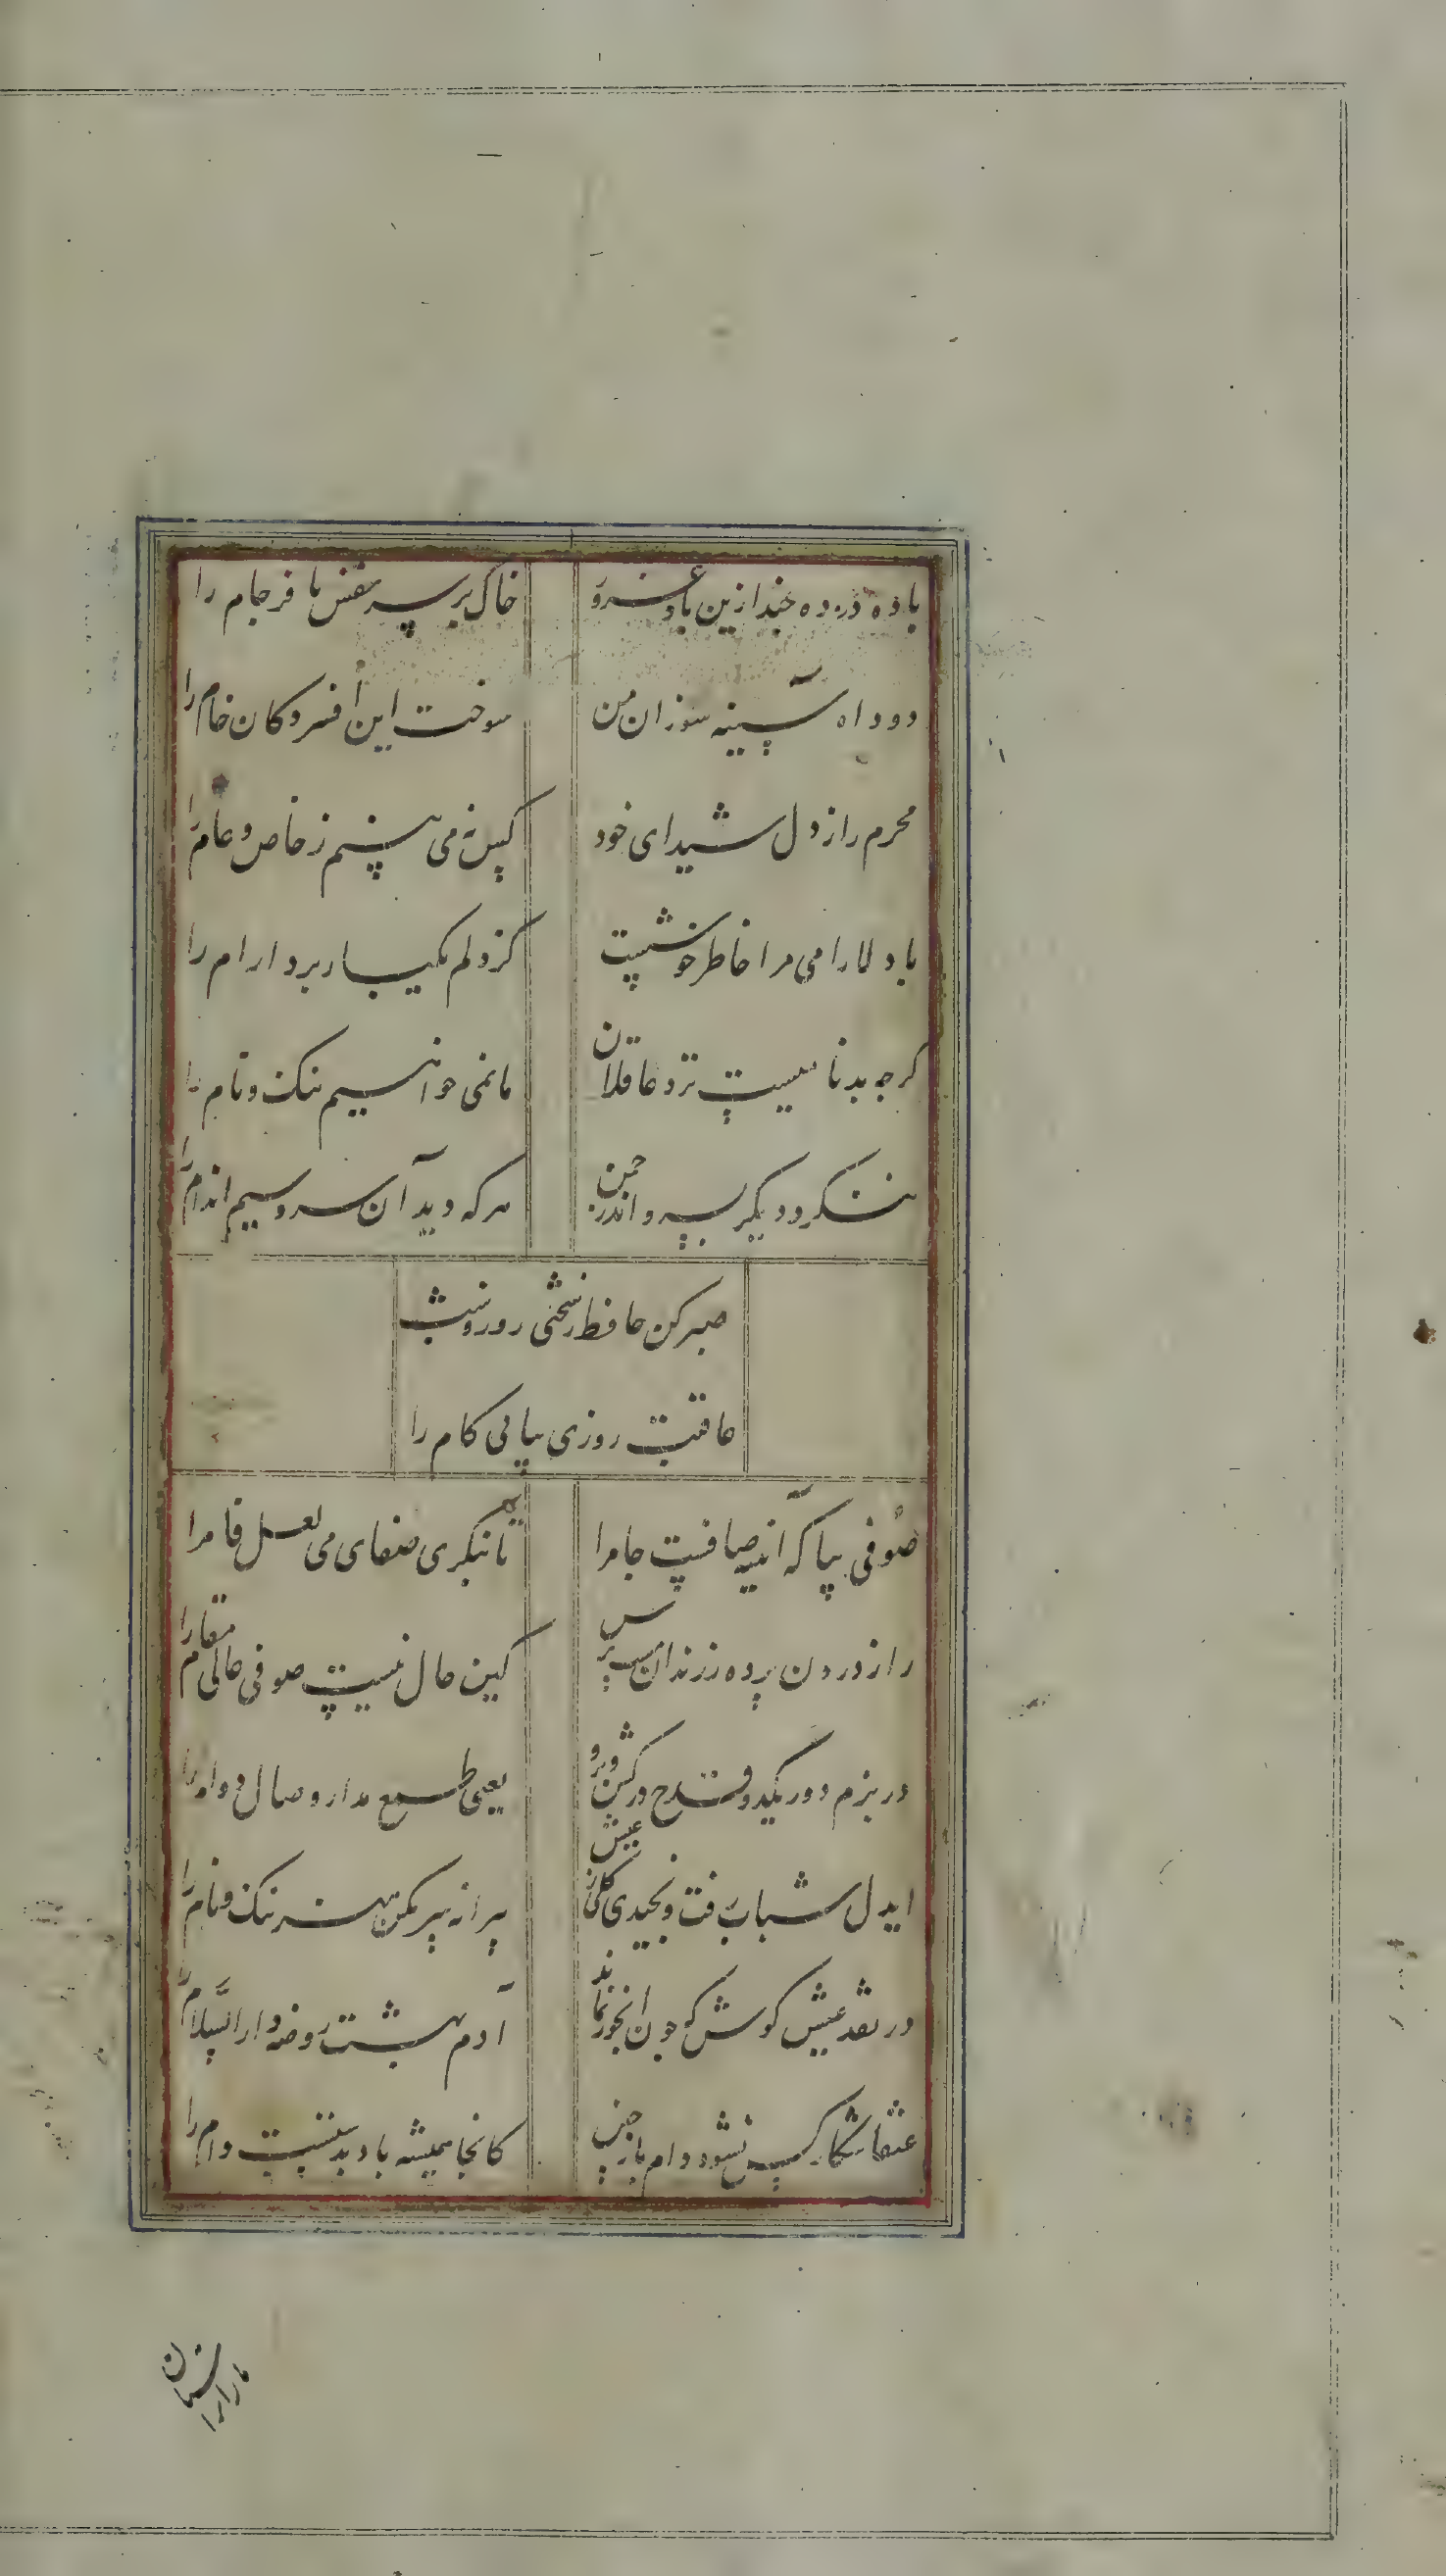 باده درده چند ازین باد غرور	خاک بر سر نفس نافرجام را
دود اه سینه سوزان من	سوخت این افسردکان خام را
محرم راز دل شیدای خود	کس نه می بینم ز خاص و عام را
با دلارامی مرا خاطر خوشست	کز دلم یکباره برد ارام را
کرچه بدنامیست نزد عاقلان	ما نمی خواهیم ننک و نام را
ننکرد دیکر بسرو اندر چمن	هرکه دید آن سرو سیم اندام را
صبر کن حافظ بسختی روز و شب
عاقبت روزی بیابی کام را
صوفی بیا که آینه صافیست جامرا	تا بنکری صفای می لعل فامرا
راز درون پرده ز رندان مست پرس	کین حال نیست صوفی عالی مقامرا
در بزم دور یکدو قدح درکش و برو	یعنی طمع مدار وصال دوامرا
ایدل شباب رفت و نچیدی کلی ز عیش	پیرانه سر مکن هنر ننک و نام را
در نقد عیش کوش که چون ابخور نماند	آدم بهشت روضه دارالسلام را
عنقا شکار کس نشود دام باز چین	کانجا همیشه باد بدستست دام را
ما را بر استان